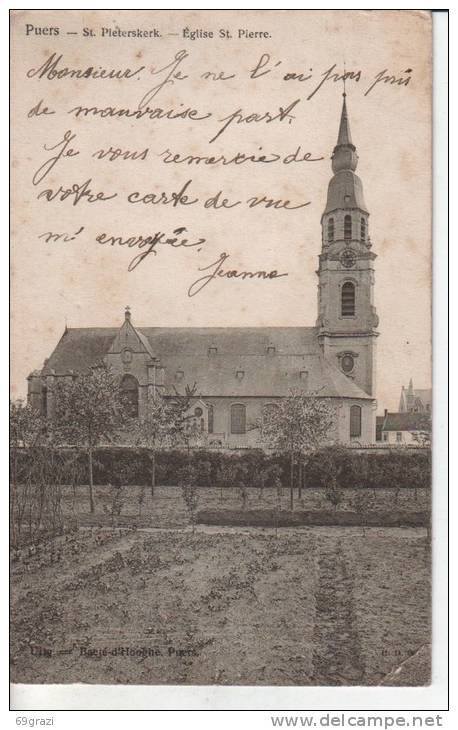 Puers — St. Pieterskerk. — Église St. Pierre.
Monsieur, Je ne l'ai pas pris
de mauvaise part.
Je vous remercie de
votre carte de vue
m' envoyée.
Jeanne
Uitg — Baeté-d'Hooghe, Puers.
69grazi
delcampe.net